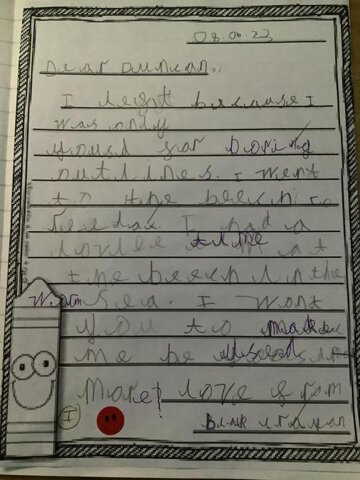 08.06.23
Dear Duncan,
I leght because I
was only
yousd for boring
outlines. I went
to the beech to
reelax. I had a
lovlee time at
the beech in the
warm Sea. I wont
you to make
me be used
More! love from